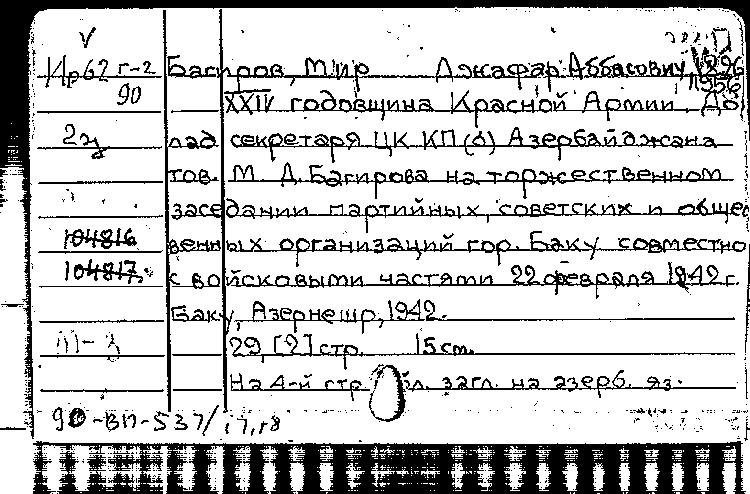 Ир62 г-2 Багиров, Мир Джафар Аббасович, 1896
90 1956
XXIV годовщина Красной Армии. До
2э лад секретаря ЦК КП(б) Азербайджана
тов. М. Д. Багирова на торжественном
заседании партийных, советских и общес
104816 венных организаций гор. Баку совместно
104817 с войсковыми частями 22 февраля 1942 г.
Баку, Азернешр, 1942.
III-3 29, [2] стр. 15 см.
На 4-й стр. обл. загл. на азерб. яз.
90-ВП-537/